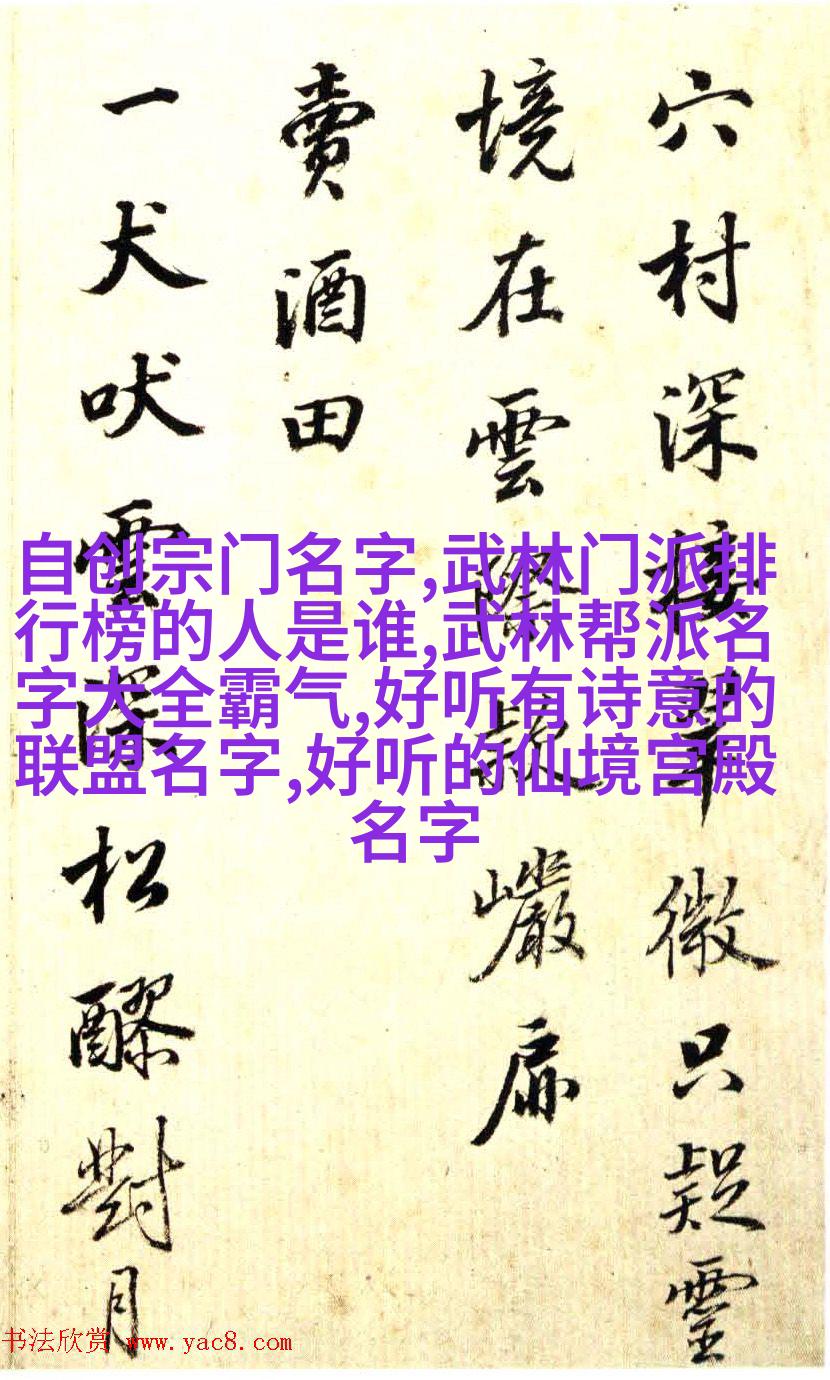 穴村深接翠微只疑靈
境在雲際巖扉
賣酒田
一犬吠雲深松醪對月
自创宗门名字,武林门派排
行榜的人是谁,武林帮派名
字大全霸气,好听有诗意的
联盟名字,好听的仙境宫殿
名字
书法欣赏 www.yac8.com